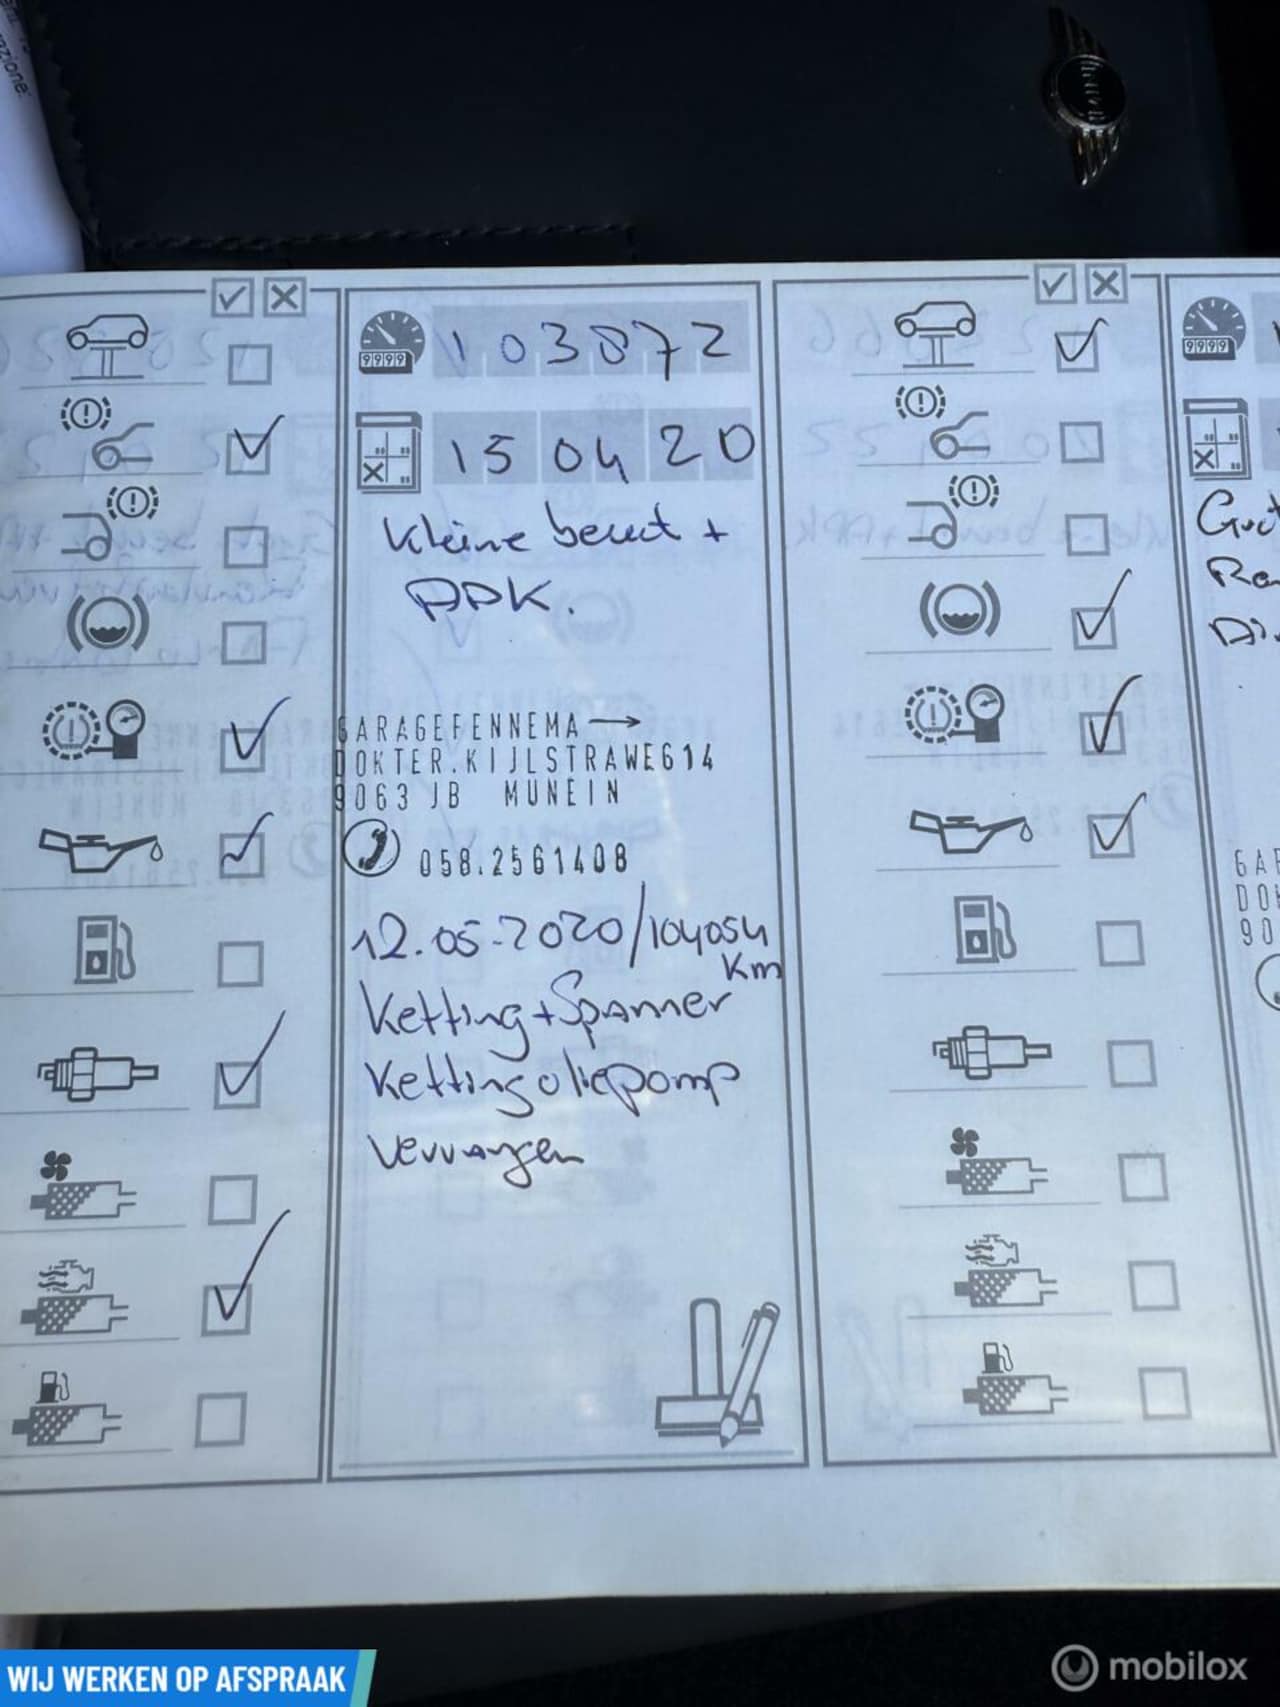 razione:
MINI
9999
103872
15 04 20
Kleine beurt +
APK.
GARAGE FENNEMA
DOKTER.KIJLSTRAWEG14
9063 JB MUNEIN
058.2561408
12.05-2020/104054
Km
Ketting+Spanner
Ketting oliepomp
vervangen
9999
GAR
DOK
90
WIJ WERKEN OP AFSPRAAK
mobilox